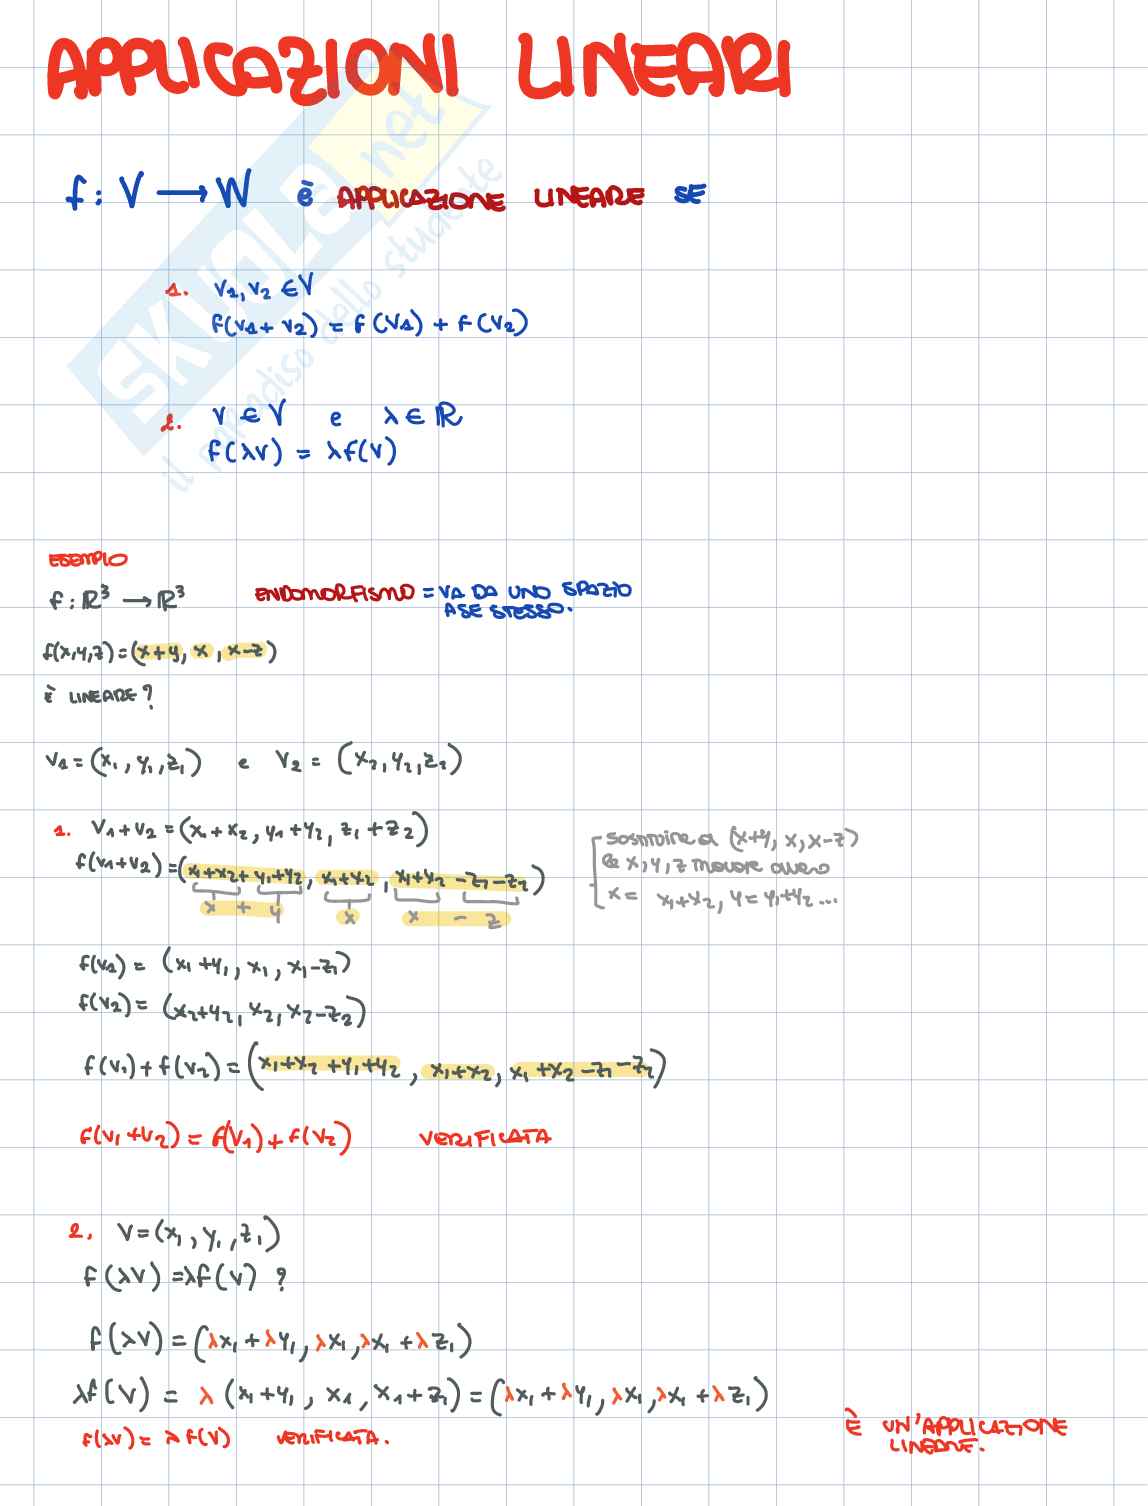 APPLICAZIONI LINEARI
f: V → W è APPLICAZIONE LINEARE SE
1. v1, v2 ∈ V
f(v1 + v2) = f(v1) + f(v2)
2. v ∈ V e λ ∈ ℝ
f(λv) = λf(v)
SKUOLA.net
il paradiso dello studente
ESEMPIO
f: ℝ³ → ℝ³ ENDOMORFISMO = VA DA UNO SPAZIO
A SE STESSO.
f(x,y,z) = (x+y, x, x-z)
È LINEARE?
v1 = (x1, y1, z1) e v2 = (x2, y2, z2)
1. v1 + v2 = (x1 + x2, y1 + y2, z1 + z2)
f(v1+v2) = (x1+x2 + y1+y2, x1+x2, x1+x2 - z1 - z2)
x + y x x - z
sostituire a (x+y, x, x-z)
x, y, z ovvero
x = x1+x2, y = y1+y2 ...
f(v1) = (x1 + y1, x1, x1 - z1)
f(v2) = (x2 + y2, x2, x2 - z2)
f(v1) + f(v2) = (x1+x2 + y1+y2, x1+x2, x1+x2 - z1 - z2)
f(v1 + v2) = f(v1) + f(v2) VERIFICATA
2. v = (x1, y1, z1)
f(λv) = λf(v) ?
f(λv) = (λx1 + λy1, λx1, λx1 + λz1)
λf(v) = λ (x1 + y1, x1, x1 + z1) = (λx1 + λy1, λx1, λx1 + λz1)
f(λv) = λ f(v) VERIFICATA.
È UN'APPLICAZIONE
LINEARE.